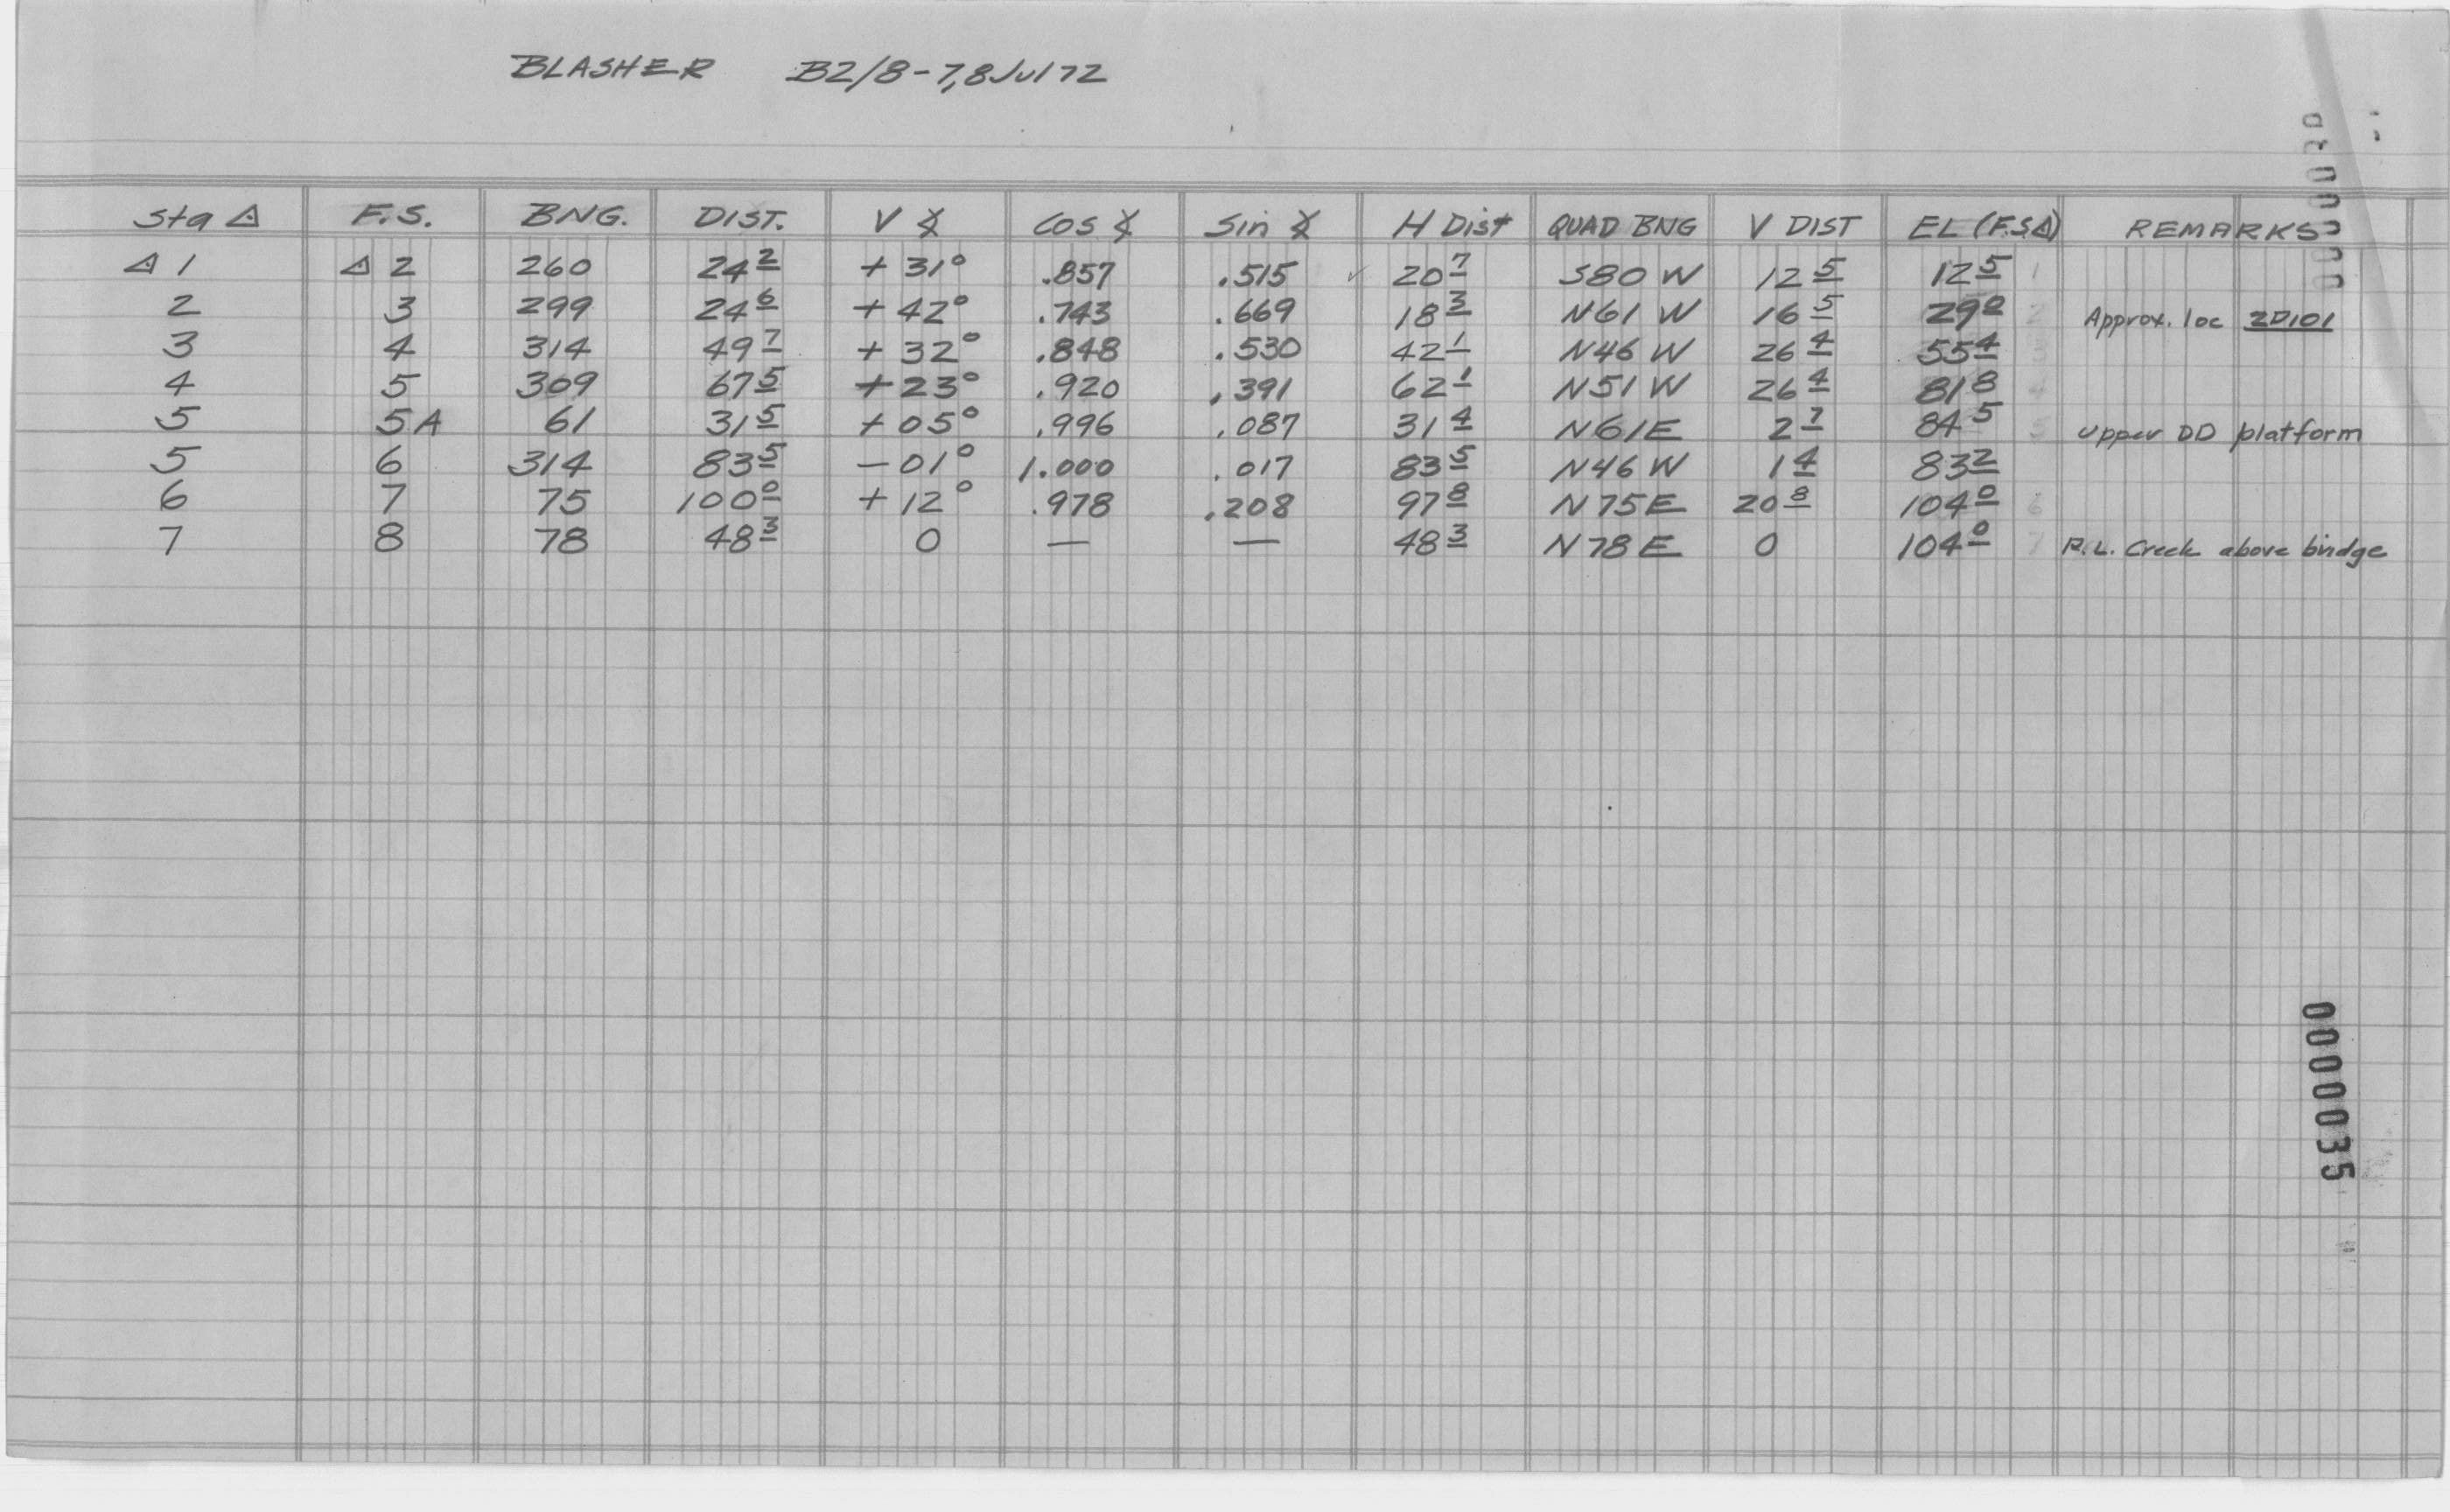 BLASHER B2/8-7,8Jul72
Sta △ F.S. BNG. DIST. V ∡ COS ∡ Sin ∡ H Dist QUAD BNG V DIST EL (F.S.△) REMARKS
△ 1 △ 2 260 24 2 + 31° .857 .515 ✓ 20 7 S80 W 12 5 12 5 1
2 3 299 24 6 + 42° .743 .669 18 3 N61 W 16 5 29 0 2 Approx. loc 2D101
3 4 314 49 7 + 32° .848 .530 42 1 N46 W 26 4 55 4 3
4 5 309 67 5 + 23° .920 .391 62 1 N51 W 26 4 81 8 4
5 5A 61 31 5 + 05° .996 .087 31 4 N61E 2 7 84 5 5 Upper DD platform
5 6 314 83 5 - 01° 1.000 .017 83 5 N46 W 1 4 83 2
6 7 75 100 0 + 12° .978 .208 97 8 N75E 20 8 104 0 6
7 8 78 48 3 0 — — 48 3 N78E 0 104 0 7 R.L. Creek above bridge
0000035